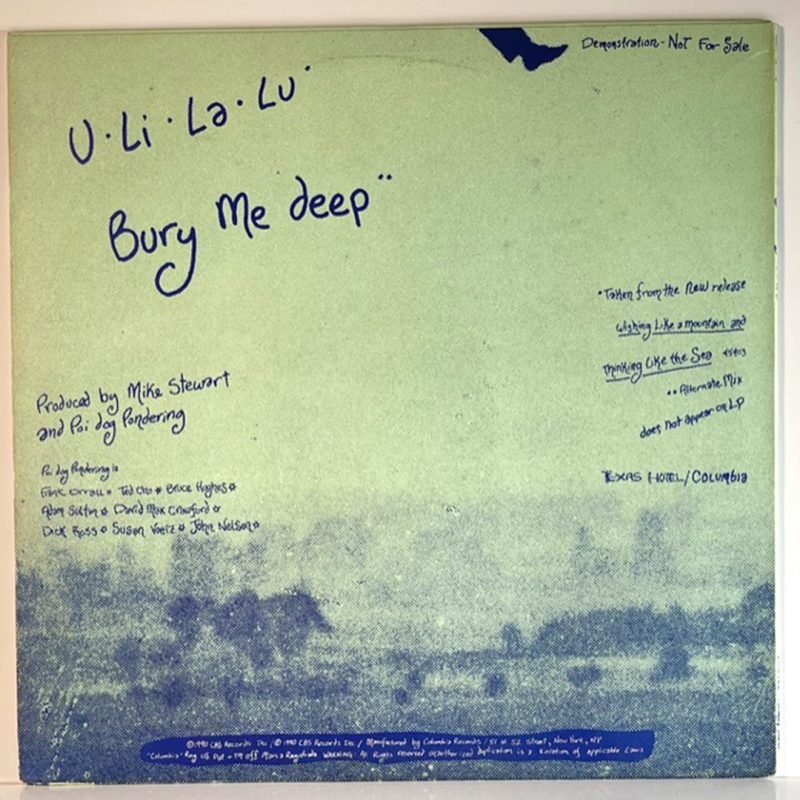 Demonstration - Not For Sale
U · Li · La · Lu *
Bury Me deep **
* Taken from the New release
Wishing Like a mountain and
Thinking Like the Sea 45403
** Alternate Mix
does not appear on LP
Produced by Mike Stewart
and Poi dog Pondering
Poi dog Pondering is
Frank Orrall ☆ Ted Cho ☆ Bruce Hughes ☆
Adam Sultan ☆ David Max Crawford ☆
Dick Ross ☆ Susan Voelz ☆ John Nelson ☆
TEXAS HOTEL/COLUMBIA
© 1990 CBS Records Inc / ℗ 1990 CBS Records Inc / Manufactured by Columbia Records / 51 W 52 Street, New York, NY
"Columbia" Reg US Pat + TM Off Marca Registrada WARNING: All Rights reserved Unauthorized duplication is a Violation of applicable Laws